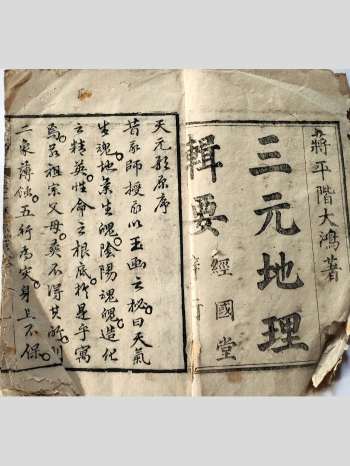 蔣平階大鴻著
三元地理
輯要
經國堂
天元歌原序
昔我師授我以玉函之秘曰天氣
生魂地炁生魄陰陽魂魄造化
之精英性命之根底於是乎寓
焉若祖宗父母不得其所則
二氣薄蝕五行為災身且不保